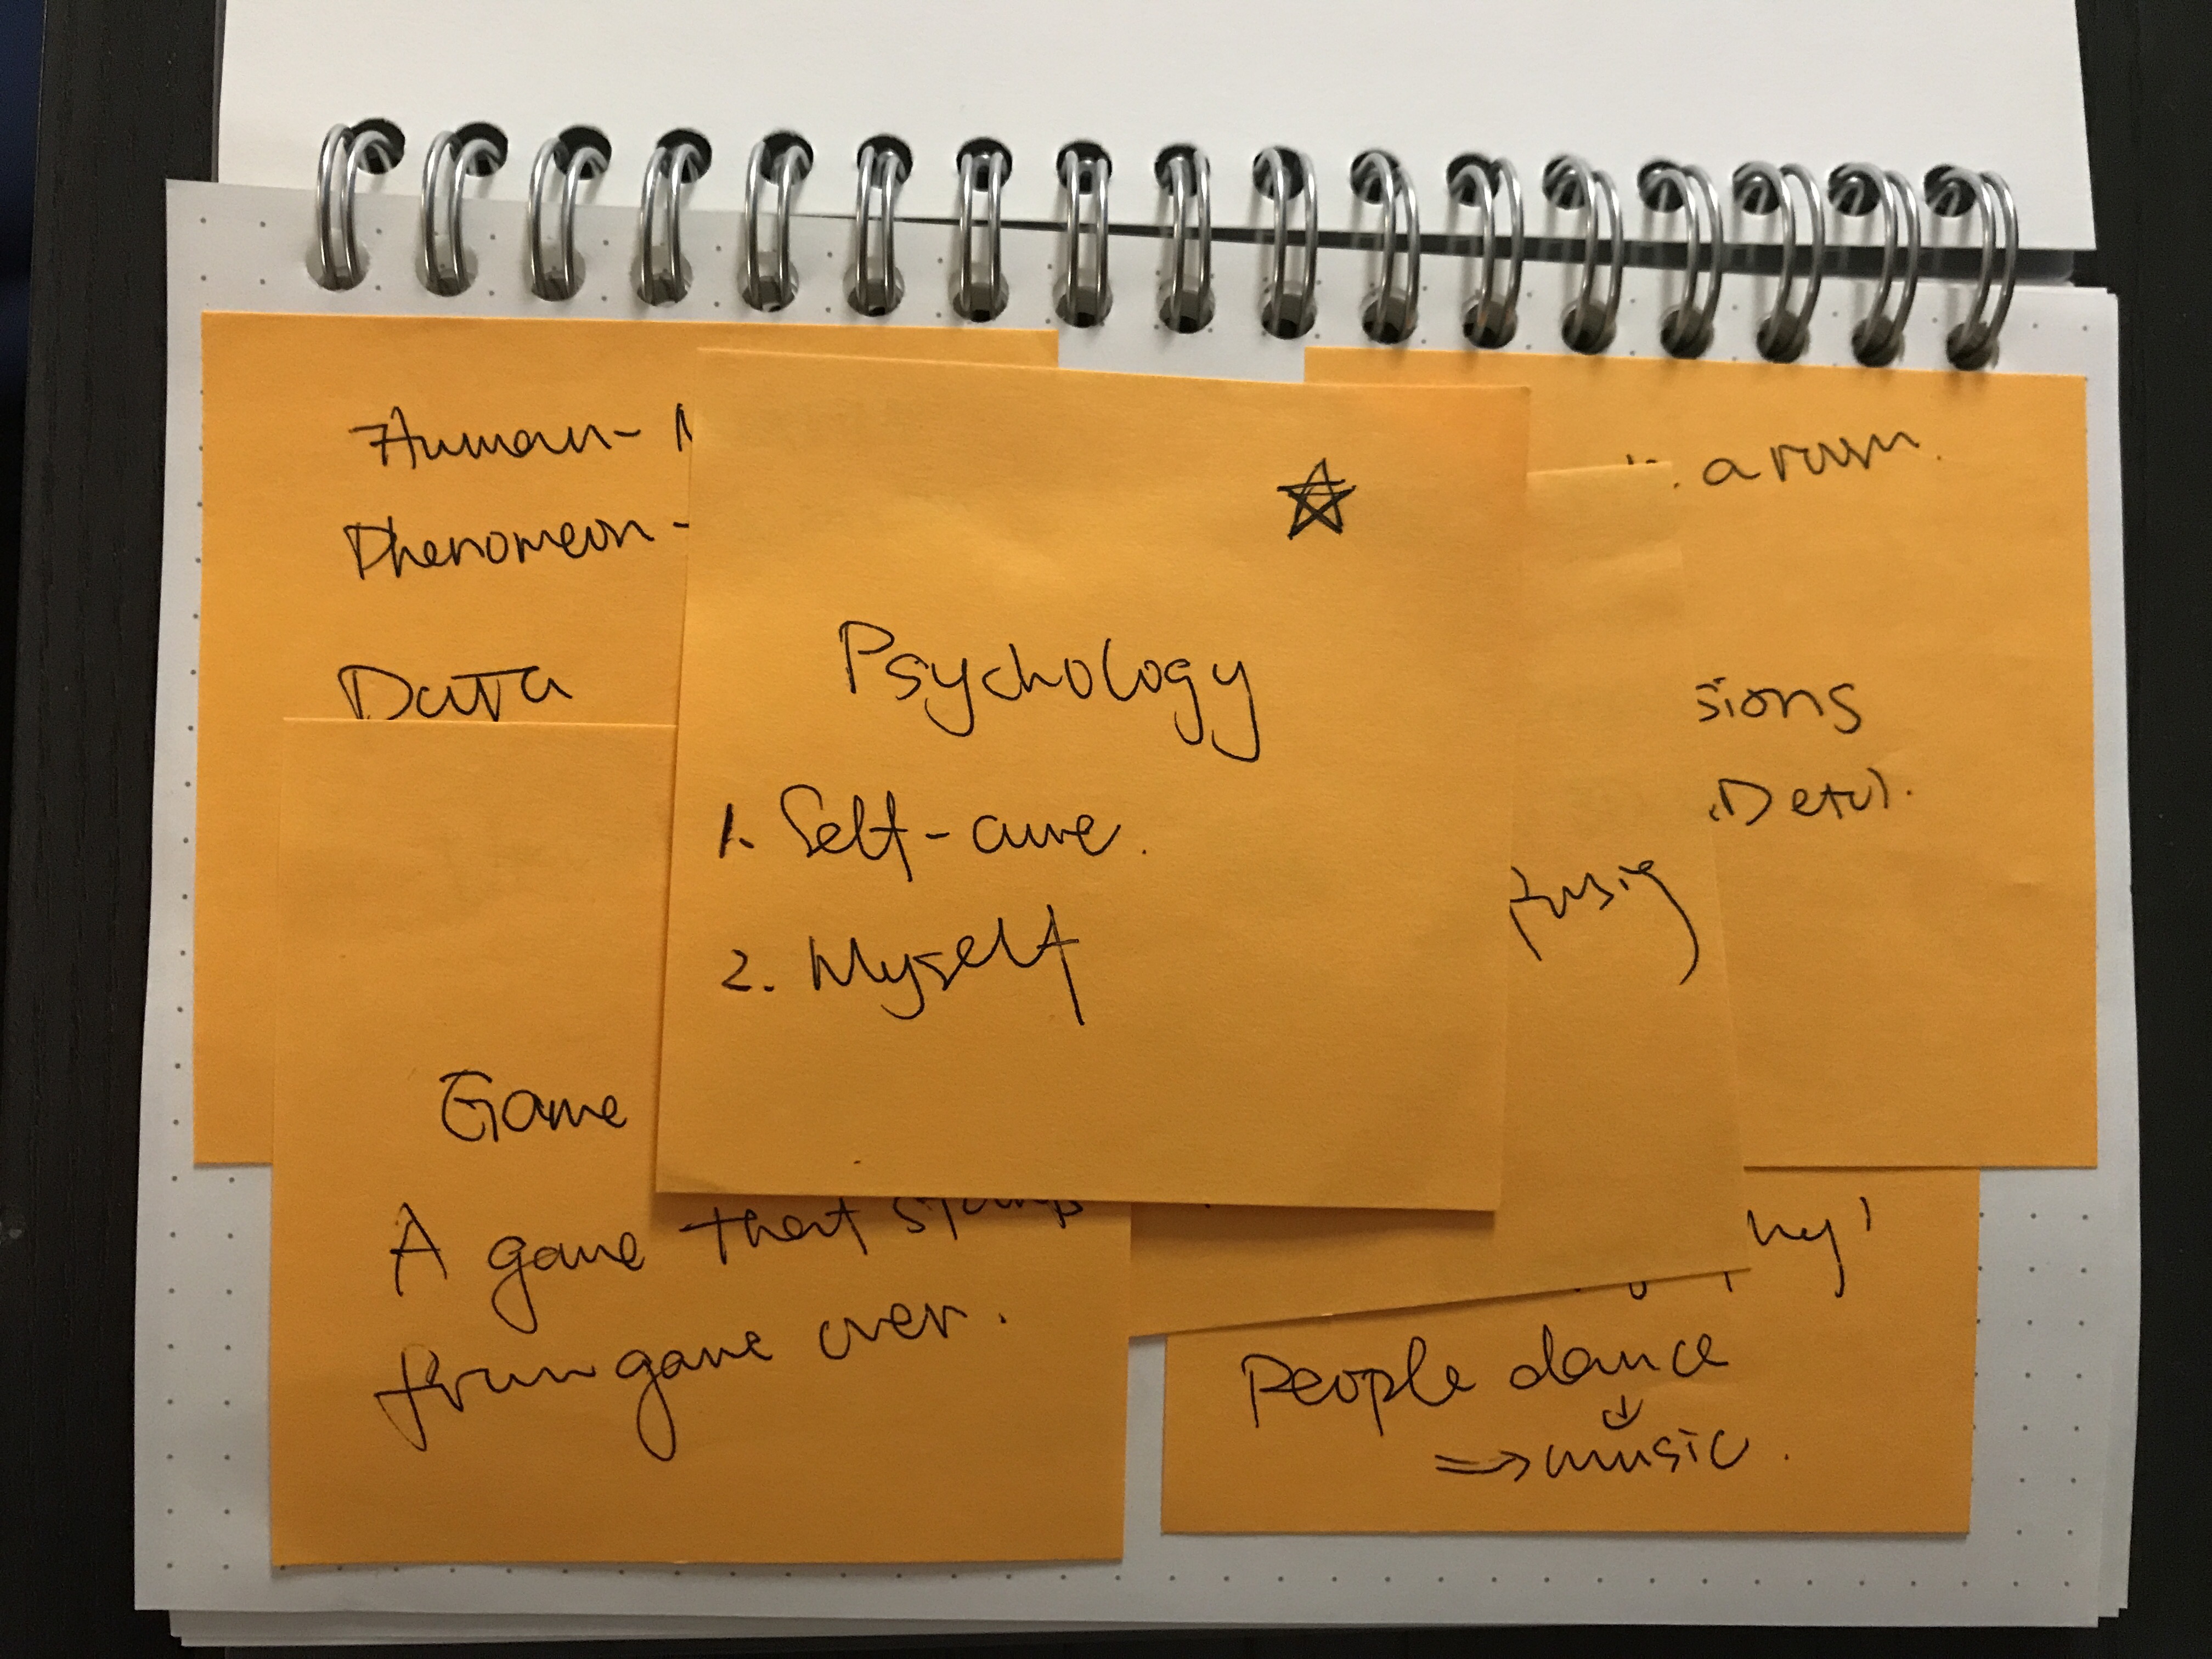 Human-
Phenomeon -
Data
Psychology
1. Self-cure.
2. Myself
a room.
sions
Game
A game that starts
from game over.
People dance
⇒ music.